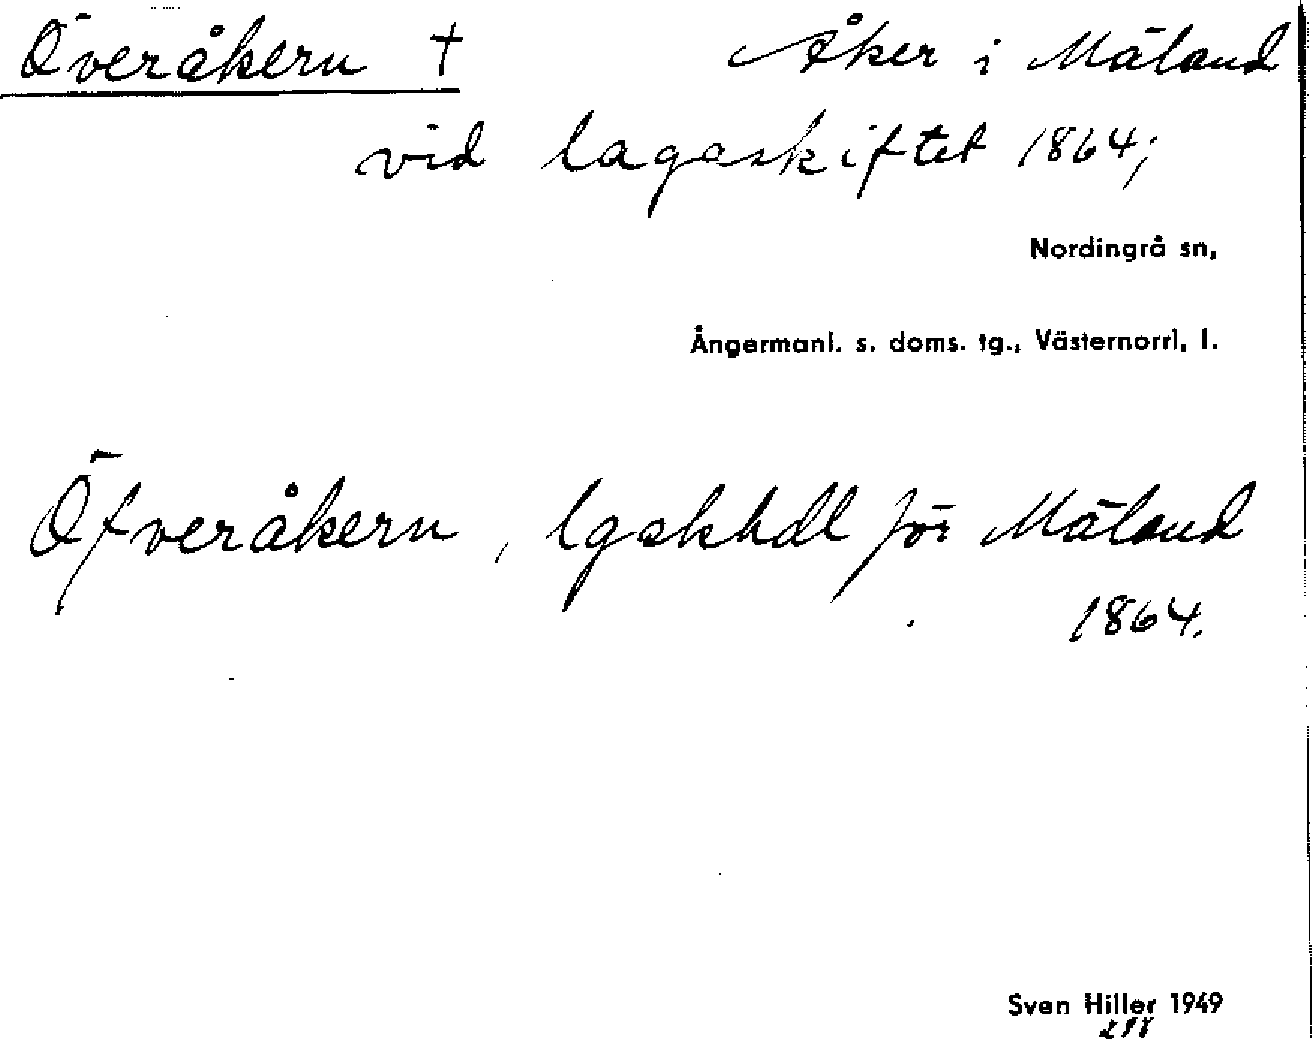 Överåkern † Åker i Mäland
vid lagaskiftet 1864;
Nordingrå sn,
Ångermanl. s. doms. tg., Västernorrl. l.
Öfveråkern, lgskhdl för Mäland
1864.
Sven Hiller 1949